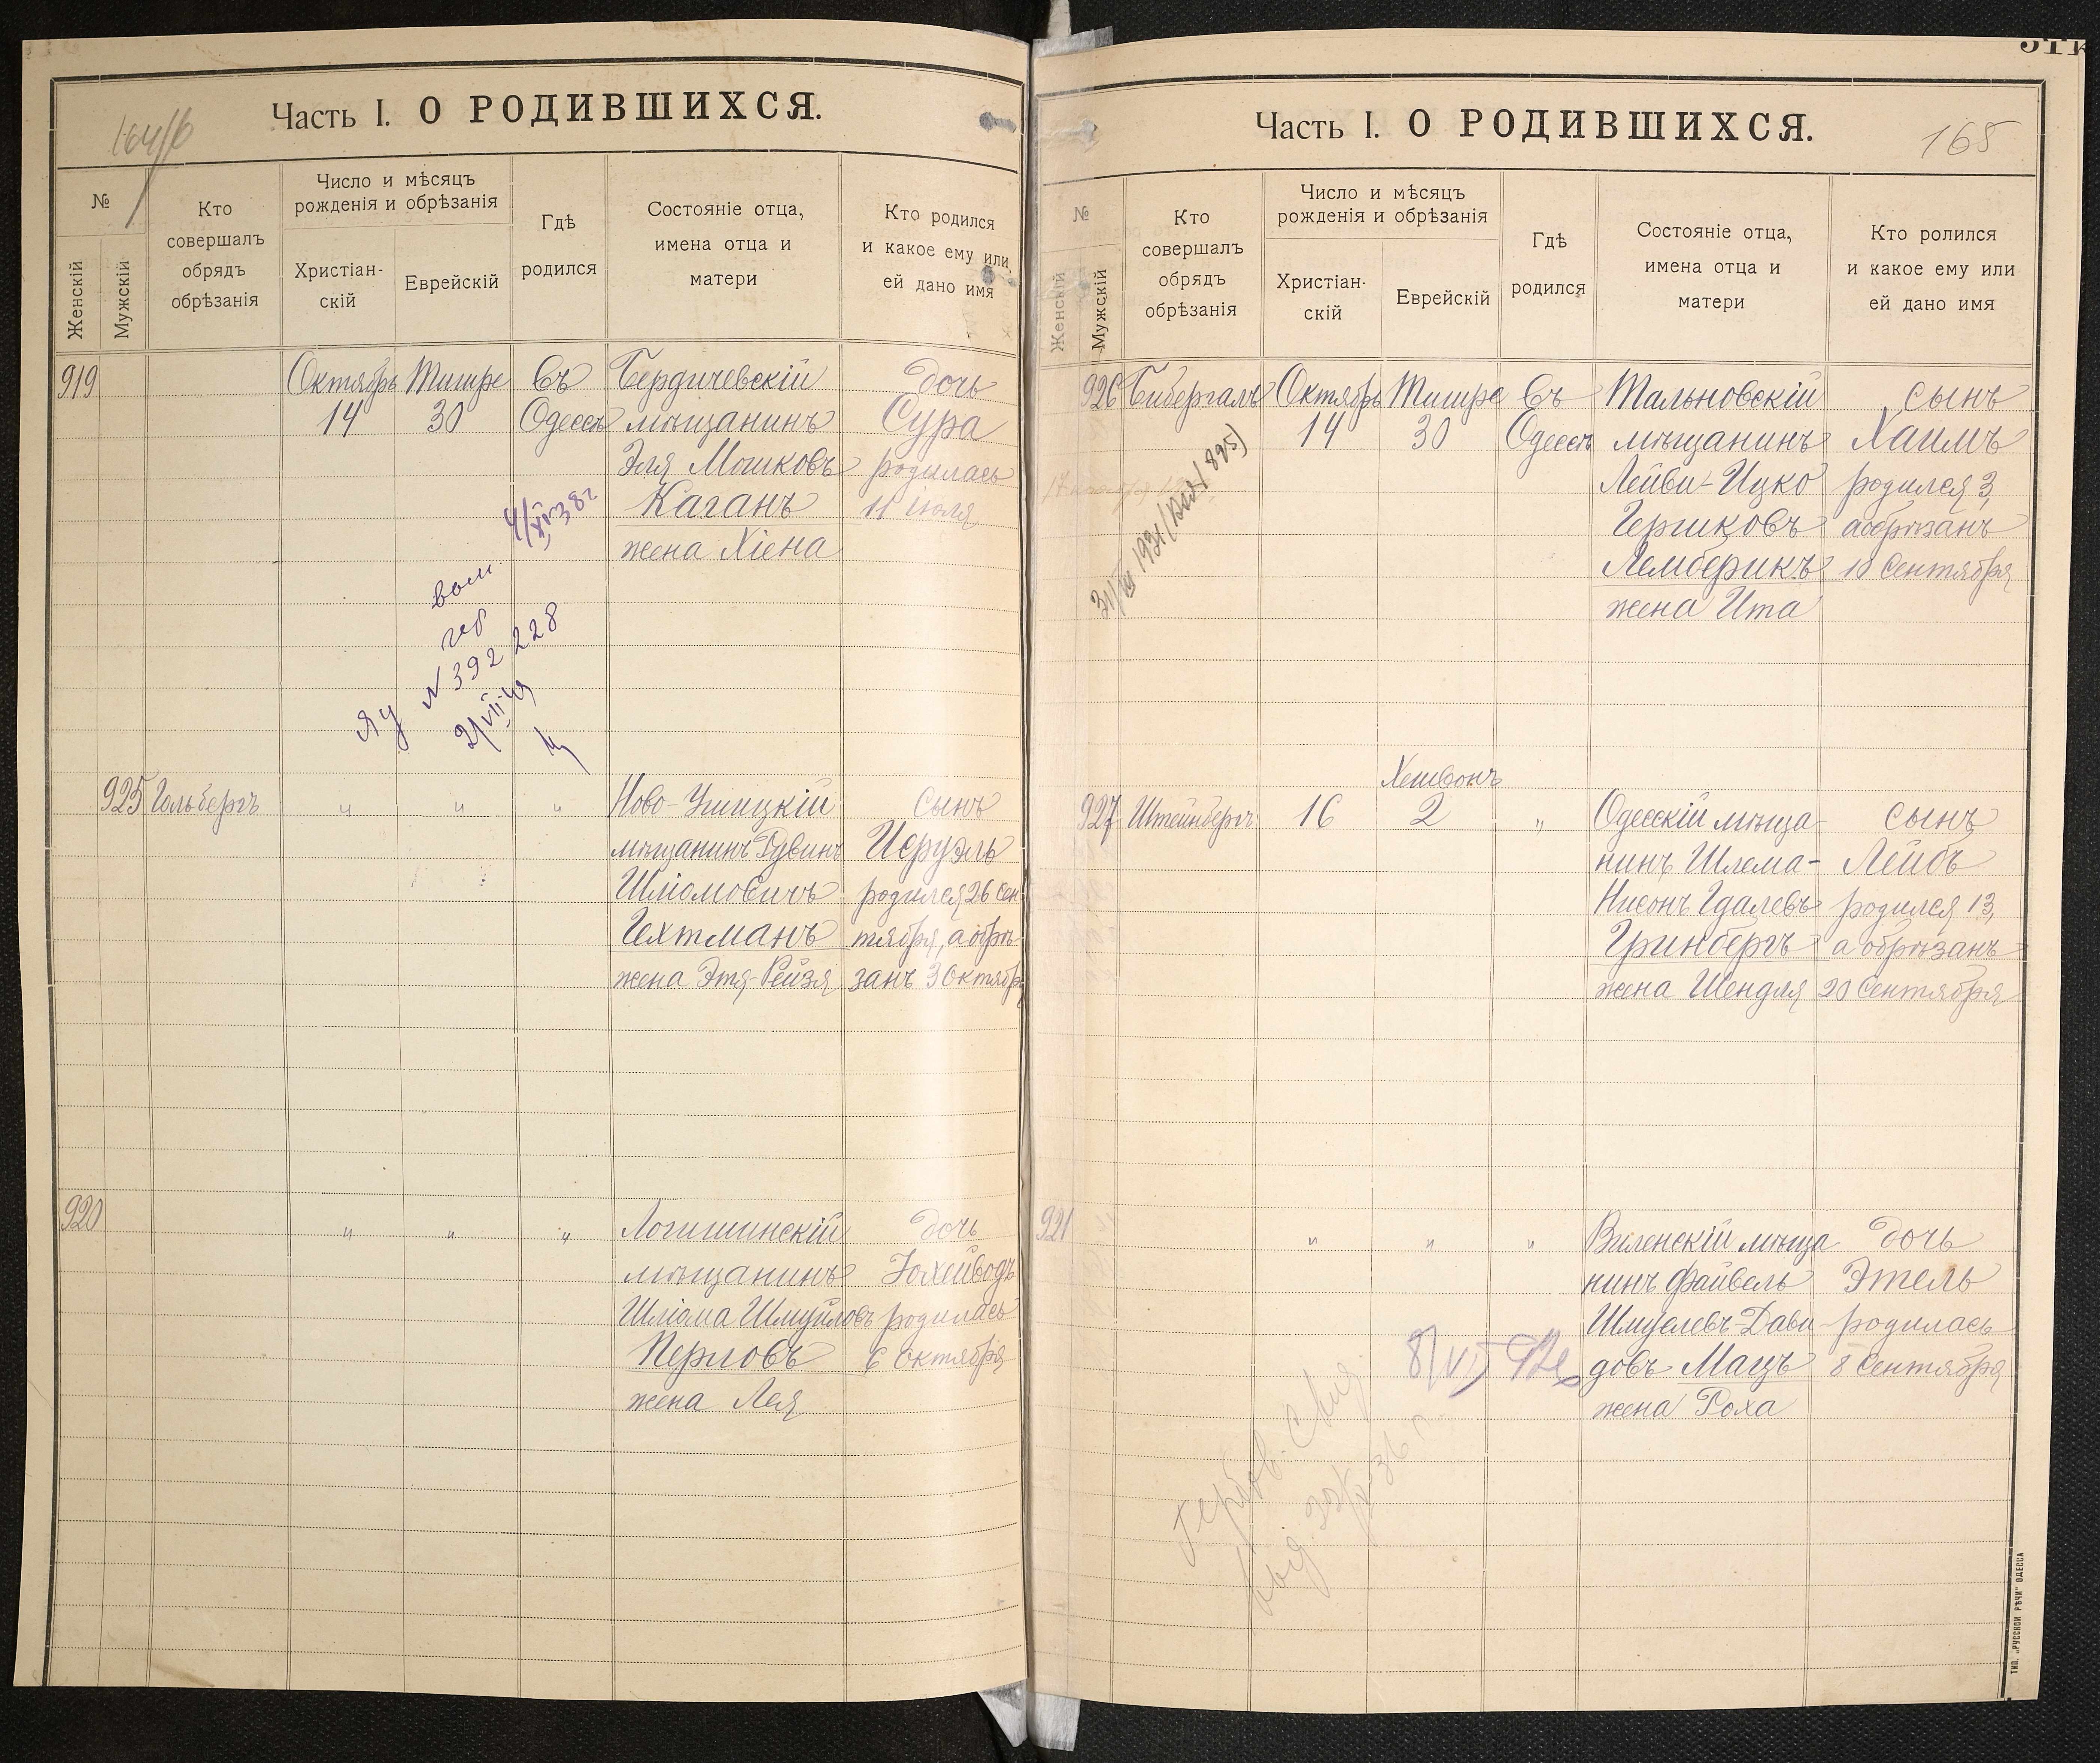 164/б
Часть I. О РОДИВШИХСЯ.
№
Женскій
Мужскій
Кто
совершалъ
обрядъ
обрѣзанія
Число и мѣсяцъ
рожденія и обрѣзанія
Христіан-
скій
Еврейскій
Гдѣ
родился
Состояніе отца,
имена отца и
матери
Кто родился
и какое ему или
ей дано имя
919 Октябрь Тишре Въ Бердичевскій дочь
14 30 Одессѣ мѣщанинъ Сура
Эля Мошковъ родилась
Каганъ 11 іюля
жена Хіена
4/XI 38г
N 392228
21/VII 49
925 Гольбергъ " " " Ново-Ушицкій сынъ
мѣщанинъ Рувинъ Исруэль
Шліомовичъ родился 26 Сен-
Гехтманъ тября, а обрѣ-
жена Этя-Рейзя занъ 3 Октября
920 " " " Логишинскій дочь
мѣщанинъ Іохейводъ
Шліома Шмуйловъ родилась
Перловъ 6 Октября
жена Лея
165
Часть I. О РОДИВШИХСЯ.
№
Женскій
Мужскій
Кто
совершалъ
обрядъ
обрѣзанія
Число и мѣсяцъ
рожденія и обрѣзанія
Христіан-
скій
Еврейскій
Гдѣ
родился
Состояніе отца,
имена отца и
матери
Кто ролился
и какое ему или
ей дано имя
926 Бибергалъ Октябрь Тишре Въ Тальновскій сынъ
14 30 Одессѣ мѣщанинъ Хаимъ
Лейви-Ицко родился 3,
Гершковъ а обрѣзанъ
Лемберикъ 10 Сентября
жена Ита
Хешвонъ
927 Штейнбергъ 16 2 " Одесскій мѣща- сынъ
нинъ Шлема- Лейбъ
Нисонъ Гдалевъ родился 13,
Гринбергъ а обрѣзанъ
жена Шендля 20 Сентября
921 " " " Виленскій мѣща дочь
нинъ Файвель Этель
Шмуелевъ-Дави- родилась
довъ Мацъ 8 Сентября
жена Роха
ТИП. „РУССКОЙ РѢЧИ" ОДЕССА